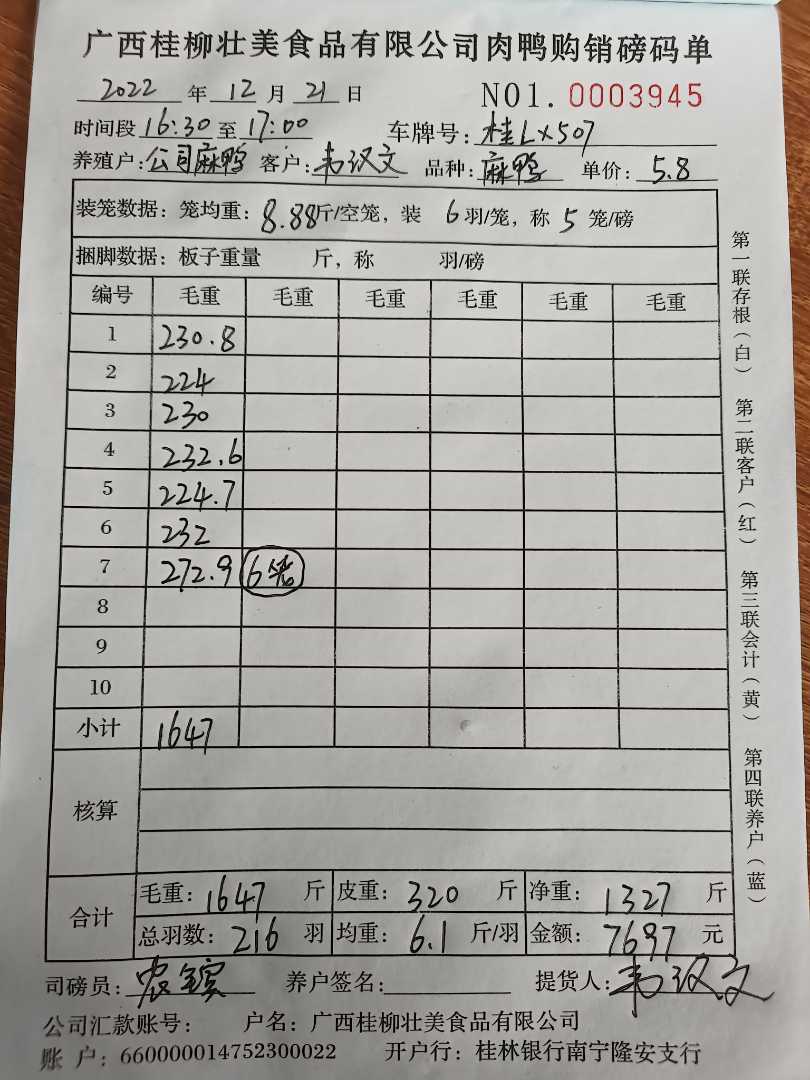 广西桂柳壮美食品有限公司肉鸭购销磅码单
2022 年 12 月 21 日 NO1. 0003945
时间段 16:30 至 17:00 车牌号: 桂LX507
养殖户: 公司麻鸭 客户: 韦汉文 品种: 麻鸭 单价: 5.8
装笼数据: 笼均重: 8.88斤/空笼, 装 6 羽/笼, 称 5 笼/磅
捆脚数据: 板子重量 斤, 称 羽/磅
编号 毛重 毛重 毛重 毛重 毛重 毛重
1 230.8
2 224
3 230
4 232.6
5 224.7
6 232
7 272.9 6笼
8
9
10
小计 1647
核算
合计 毛重: 1647 斤 皮重: 320 斤 净重: 1327 斤
总羽数: 216 羽 均重: 6.1 斤/羽 金额: 7697 元
司磅员: 农宾 养户签名: 提货人: 韦汉文
公司汇款账号: 户名: 广西桂柳壮美食品有限公司
账 户: 660000014752300022 开户行: 桂林银行南宁隆安支行
第一联存根(白) 第二联客户(红) 第三联会计(黄) 第四联养户(蓝)